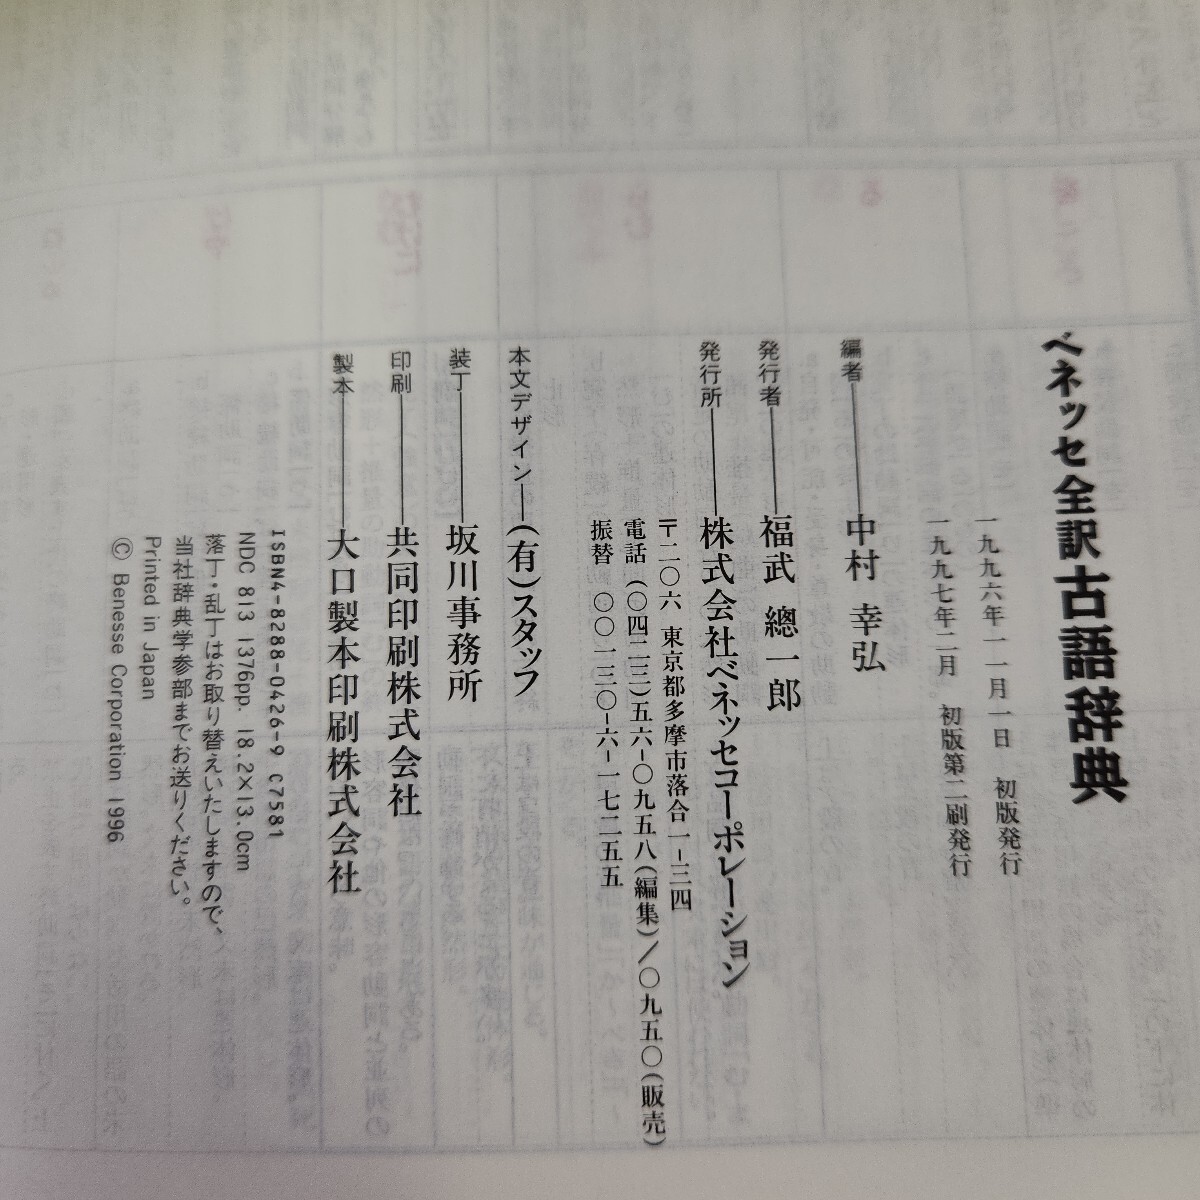 ベネッセ全訳古語辞典
一九九六年一一月一日 初版発行
一九九七年二月 初版第二刷発行
編者――中村 幸弘
発行者――福武 總一郎
発行所――株式会社ベネッセコーポレーション
〒二〇六 東京都多摩市落合一-三四
電話 (〇四二三)五六-〇九五八(編集)/〇九五〇(販売)
振替 〇〇一三〇-六-一七二五五
本文デザイン――(有)スタッフ
装丁――坂川事務所
印刷――共同印刷株式会社
製本――大口製本印刷株式会社
ISBN4-8288-0426-9 C7581
NDC 813 1376pp. 18.2×13.0cm
落丁・乱丁はお取り替えいたしますので、
当社辞典学参部までお送りください。
Printed in Japan
© Benesse Corporation 1996